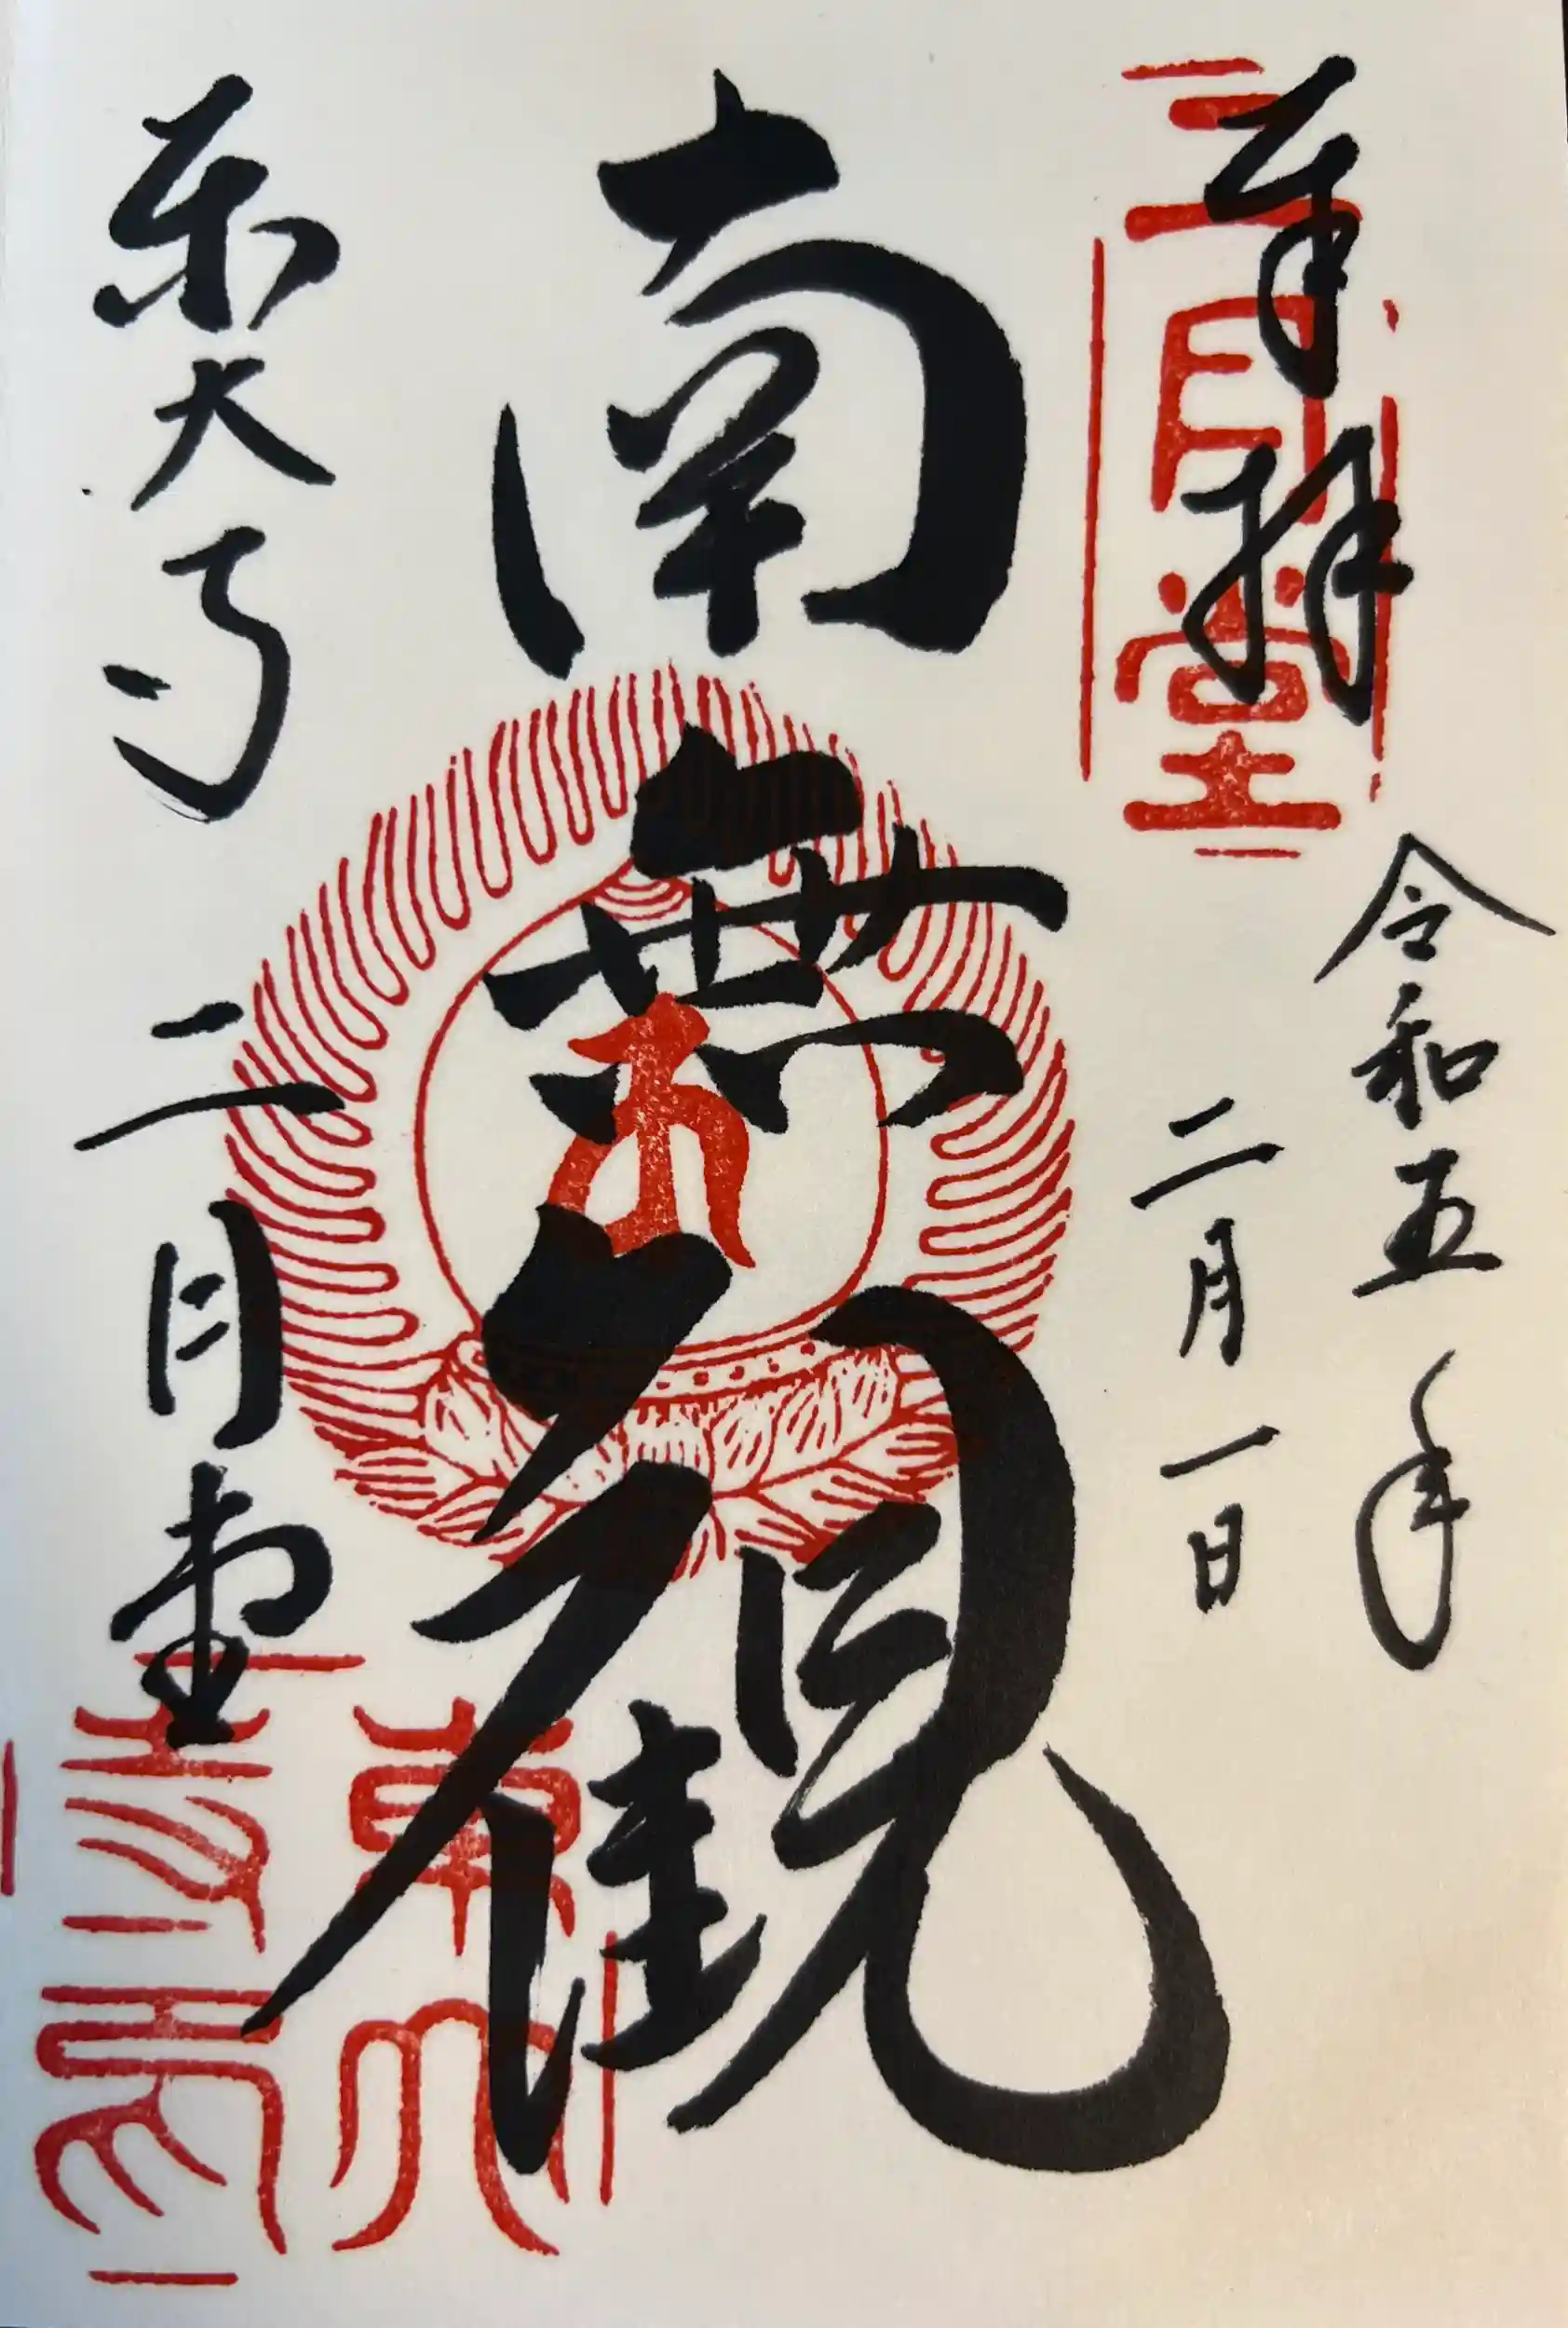 奉拝
二月堂
令和五年
二月一日
南無観
東大寺
二月堂
東大
寺印